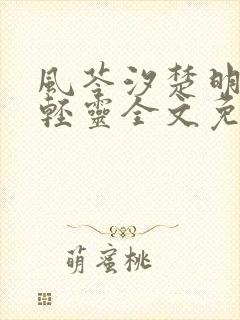 風苓汐楚明
輕靈全文免
萌蜜桃